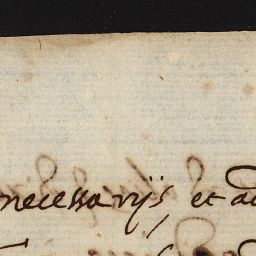 necessarijs, et ad